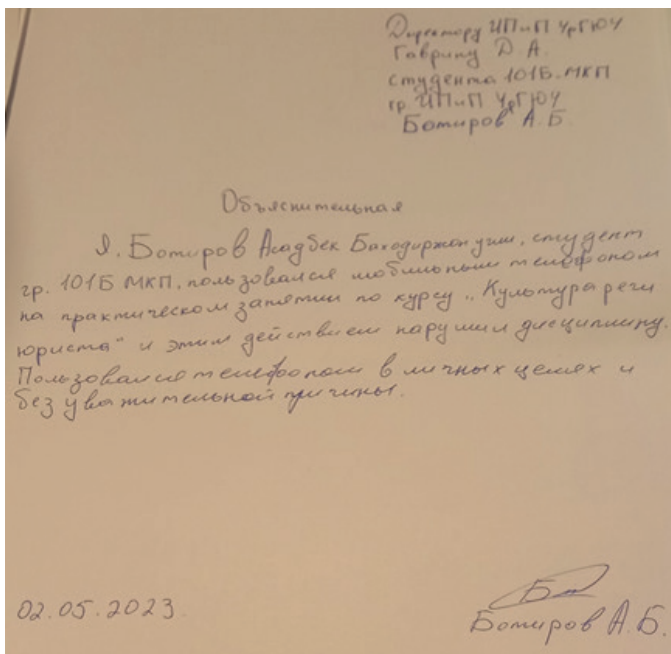 Директору ИПиП УрГЮУ
Гаврину Д. А.
студента 101Б-МКП
гр. ИПиП УрГЮУ
Ботиров А.Б.
Объяснительная
Я, Ботиров Асадбек Баходиржон угли, студент
гр. 101Б МКП, пользовался мобильным телефоном
на практическом занятии по курсу „Культура речи
юриста" и этим действием нарушил дисциплину.
Пользовался телефоном в личных целях и
без уважительной причины.
02.05.2023.
Ботиров А.Б.